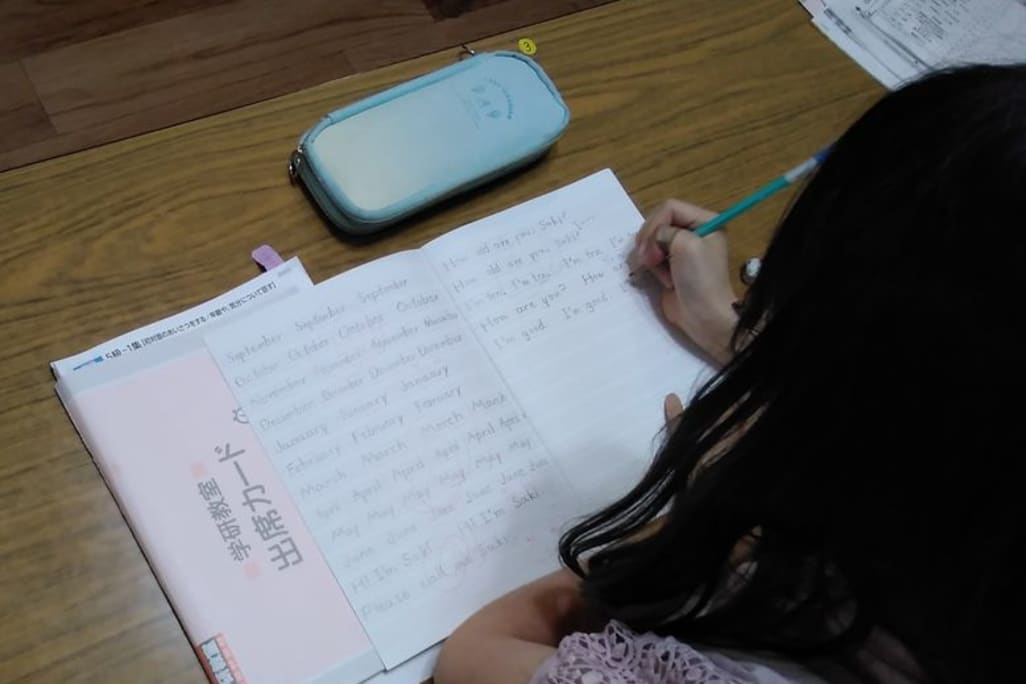 5級-1集 [初対面のあいさつをする/年齢や、気分について話す]
学研教室
出席カード
3
September September September
October October October October
November November November November
December December December December
January January January
February February February
March March March March
April April April April April
May May May May May May
June June June June June June
Hi! I'm Saki Hi! I'm Saki
Please call me Saki.
How old are you, Saki?
How old are you, Saki? I'm
I'm ten. I'm ten. I'm ten. I'm
How are you? How
I'm good. I'm good.